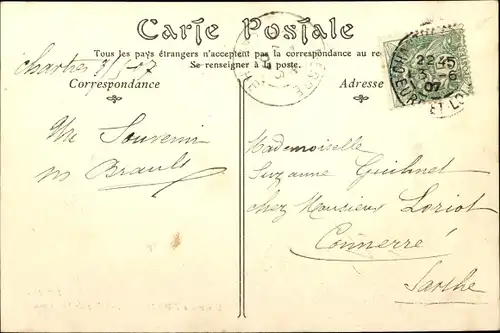 Carte Postale
Tous les pays étrangers n'acceptent pas la correspondance au re
Se renseigner à la poste.
Chartres 3/5-07
Correspondance
Adresse
22 45
3 -6
07
ET-LO
Un Souvenir
M Brault
Mademoiselle
Suzanne Guilmet
chez Monsieur Loriot
Connerré
Sarthe